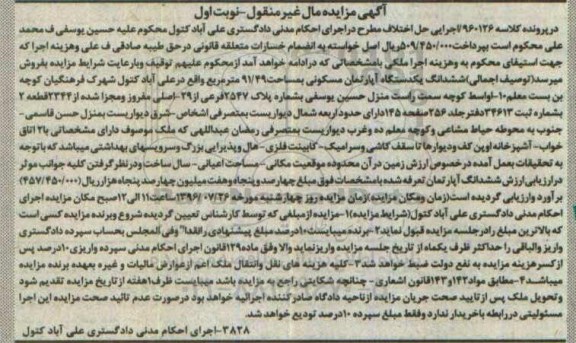 آگهی مزایده مال غیر منقول-نوبت اول
درپرونده کلاسه ۹۶۰۱۲۶/اجرایی حل اختلاف مطرح دراجرای احکام مدنی دادگستری علی آباد کتول محکوم علیه حسین یوسفی ف محمد
علی محکوم است بپرداخت ۵۰۹/۴۵۰/۰۰۰ریال اصل خواسته به انضمام خسارات متعلقه قانونی درحق طیبه صادقی ف علی وهزینه اجرا که
جهت استیفای محکوم به وهزینه اجرا ملکی بامشخصاتی که درادامه خواهد آمد ازمحکوم علیهم توقیف وبارعایت شرایط مزایده بفروش
میرسد(توصیف اجمالی)ششدانگ یکدستگاه آپارتمان مسکونی بمساحت ۹۱/۴۹ مترمربع واقع درعلی آباد کتول شهرک فرهنگیان کوچه
بن بست معلم ۱۰-اواسط کوچه سمت راست منزل حسین یوسفی بشماره پلاک ۲۵۴۷فرعی از۲۹-اصلی مفروز ومجزا شده از۲۳۴۴قطعه ۲
بشماره ثبت ۳۴۶۱۳دفترجلد ۲۵۶صفحه ۱۴۵دارای حدود اربعه شمال دیواریست بمتصرفی اشخاص-شرق دیواریست بمنزل حسن قاسمی-
جنوب به محوطه حیاط مشاعی وکوچه معلم ده وغرب دیواریست بمتصرفی رمضان عبداللهی که ملک موصوف دارای مشخصاتی با۲ اتاق
خواب-آشپزخانه اوپن کف ودیوارها تا سقف کاشی وسرامیک-کابینت فلزی-هال وپذیرایی بزرگ وسرویسهای بهداشتی میباشد که باتوجه
به تحقیقات بعمل آمده درخصوص ارزش زمین درآن محدوده موقعیت مکانی-مساحت اعیانی-سال ساخت ودرنظرگرفتن کلیه جوانب موثر
درارزیابی ارزش ششدانگ آپارتمان تعرفه شده بامشخصات فوق مبلغ چهارصدوپنجاه وهفت میلیون چهارصدپنجاه هزارریال(۴۵۷/۴۵۰/۰۰۰)
برآورد وارزیابی گردیده است(زمان ومکان مزایده)زمان مزایده روز چهارشنبه مورخه ۱۳۹۶/۰۷/۲۶ساعت ۱۱الی ۱۲صبح مکان مزایده اجرای
احکام مدنی دادگستری علی آباد کتول(شرایط مزایده)۱-مزایده ازمبلغی که توسط کارشناس تعیین گردیده شروع وبرنده مزایده کسی است
که بالاترین مبلغ رادرجلسه مزایده قبول نماید۲-برنده میبایست۱۰درصد مبلغ پیشنهادی رانقدا" وفی المجلس بحساب سپرده دادگستری
واریز والباقی را حداکثر ظرف یکماه از تاریخ جلسه مزایده واریزنماید والا وفق ماده۱۲۹قانون اجرای احکام مدنی سپرده واریزی۱۰درصد پس
ازکسرهزینه مزایده به نفع دولت ضبط خواهد شد۳-کلیه هزینه های نقل وانتقال ملک اعم ازعوارض مالیات و غیره بعهده برنده مزایده
میباشد۴-مطابق مواد۱۴۲و۱۴۳قانون اشعاری-چنانچه شکایتی راجع به مزایده باشد میبایست ظرف۱هفته از تاریخ مزایده تقدیم شود
وتحویل ملک پس ازتایید صحت جریان مزایده ازناحیه دادگاه صادرکننده اجرائیه خواهد بود درصورت عدم تائید صحت مزایده این اجرا
مسئولیتی دررابطه باخریدار ندارد وفقط مبلغ سپرده ۱۰درصد تودیع خواهد شد.
۳۸۲۸-اجرای احکام مدنی دادگستری علی آباد کتول